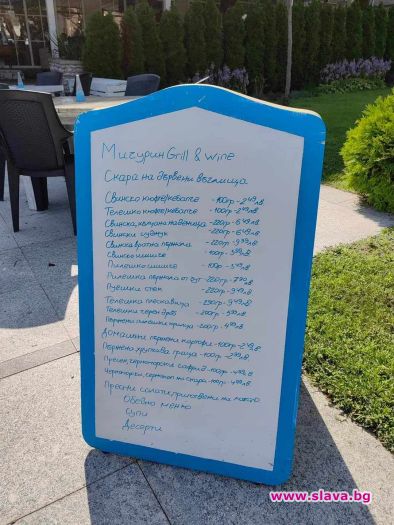 Мичурин Grill & Wine
Скара на дървени въглища
Свинско кюфте/кебапче -100гр-2⁴⁹лв
Телешко кюфте/кебапче -100гр-2⁹⁹лв
Свинска, кълцана наденица -220гр-6⁴⁹лв
Свински суджук -220гр-6⁴⁹лв
Свинска вратна пържола -220гр-9⁹⁹лв
Свинско шишче -100гр-3⁹⁹лв
Пилешко шишче -100гр-3⁹⁹лв
Пилешка пържола от бут -220гр-7⁹⁹лв
Пуешки стек -220гр-9⁴⁹лв
Телешка плескавица -250гр-9⁴⁹лв
Телешки черен дроб -200гр-5⁹⁹лв
Пържени пилешки -200гр-4⁹⁹лв
Домашни пържени картофи -100гр-2⁴⁹лв
Пържена хрупкава -100гр-2⁹⁹лв
Пресен, черноморски сафрид -100гр-4⁹⁹лв
Черноморски, на скара -100гр-4⁹⁹лв
Пресни салати приготвени на място
Обедно меню
Супи
Десерти
www.slava.bg